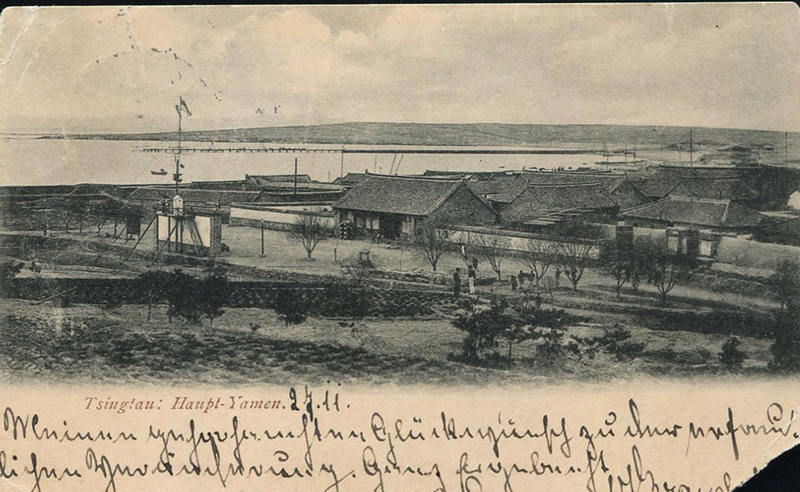 Tsingtau: Haupt-Yamen. 27.11.
Meinen gehorsamsten Glückwunsch zu der erfreu-
lichen Veränderung. Ganz ergebenst